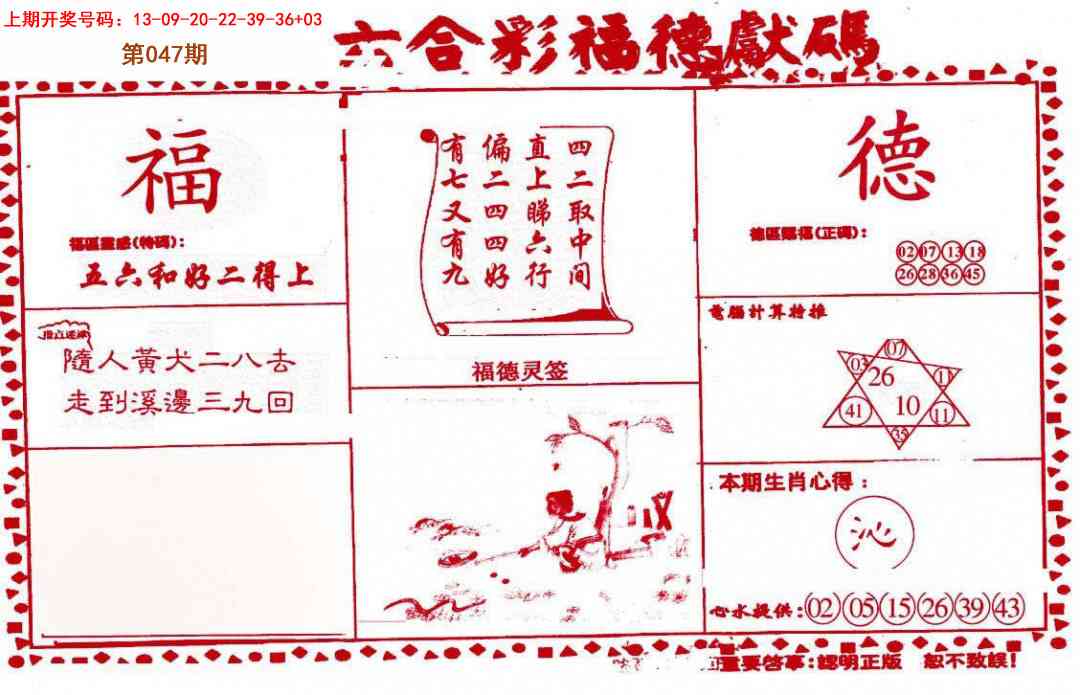 上期开奖号码：13-09-20-22-39-36+03
第047期
六合彩福德獻碼
福
福區靈感(特碼)：
五六和好二得上
隨人黃犬二八去
走到溪邊三九回
四二取中间
直上睇六行
偏二四四好
有七又有九
福德灵签
德
德區賜福(正碼)：
02 07 13 18
26 28 36 45
電腦計算特推
07
03 26
41 10 11
35
本期生肖心得：
沁
心水提供：02 05 15 26 39 43
重要啓事：認明正版 恕不致誤！